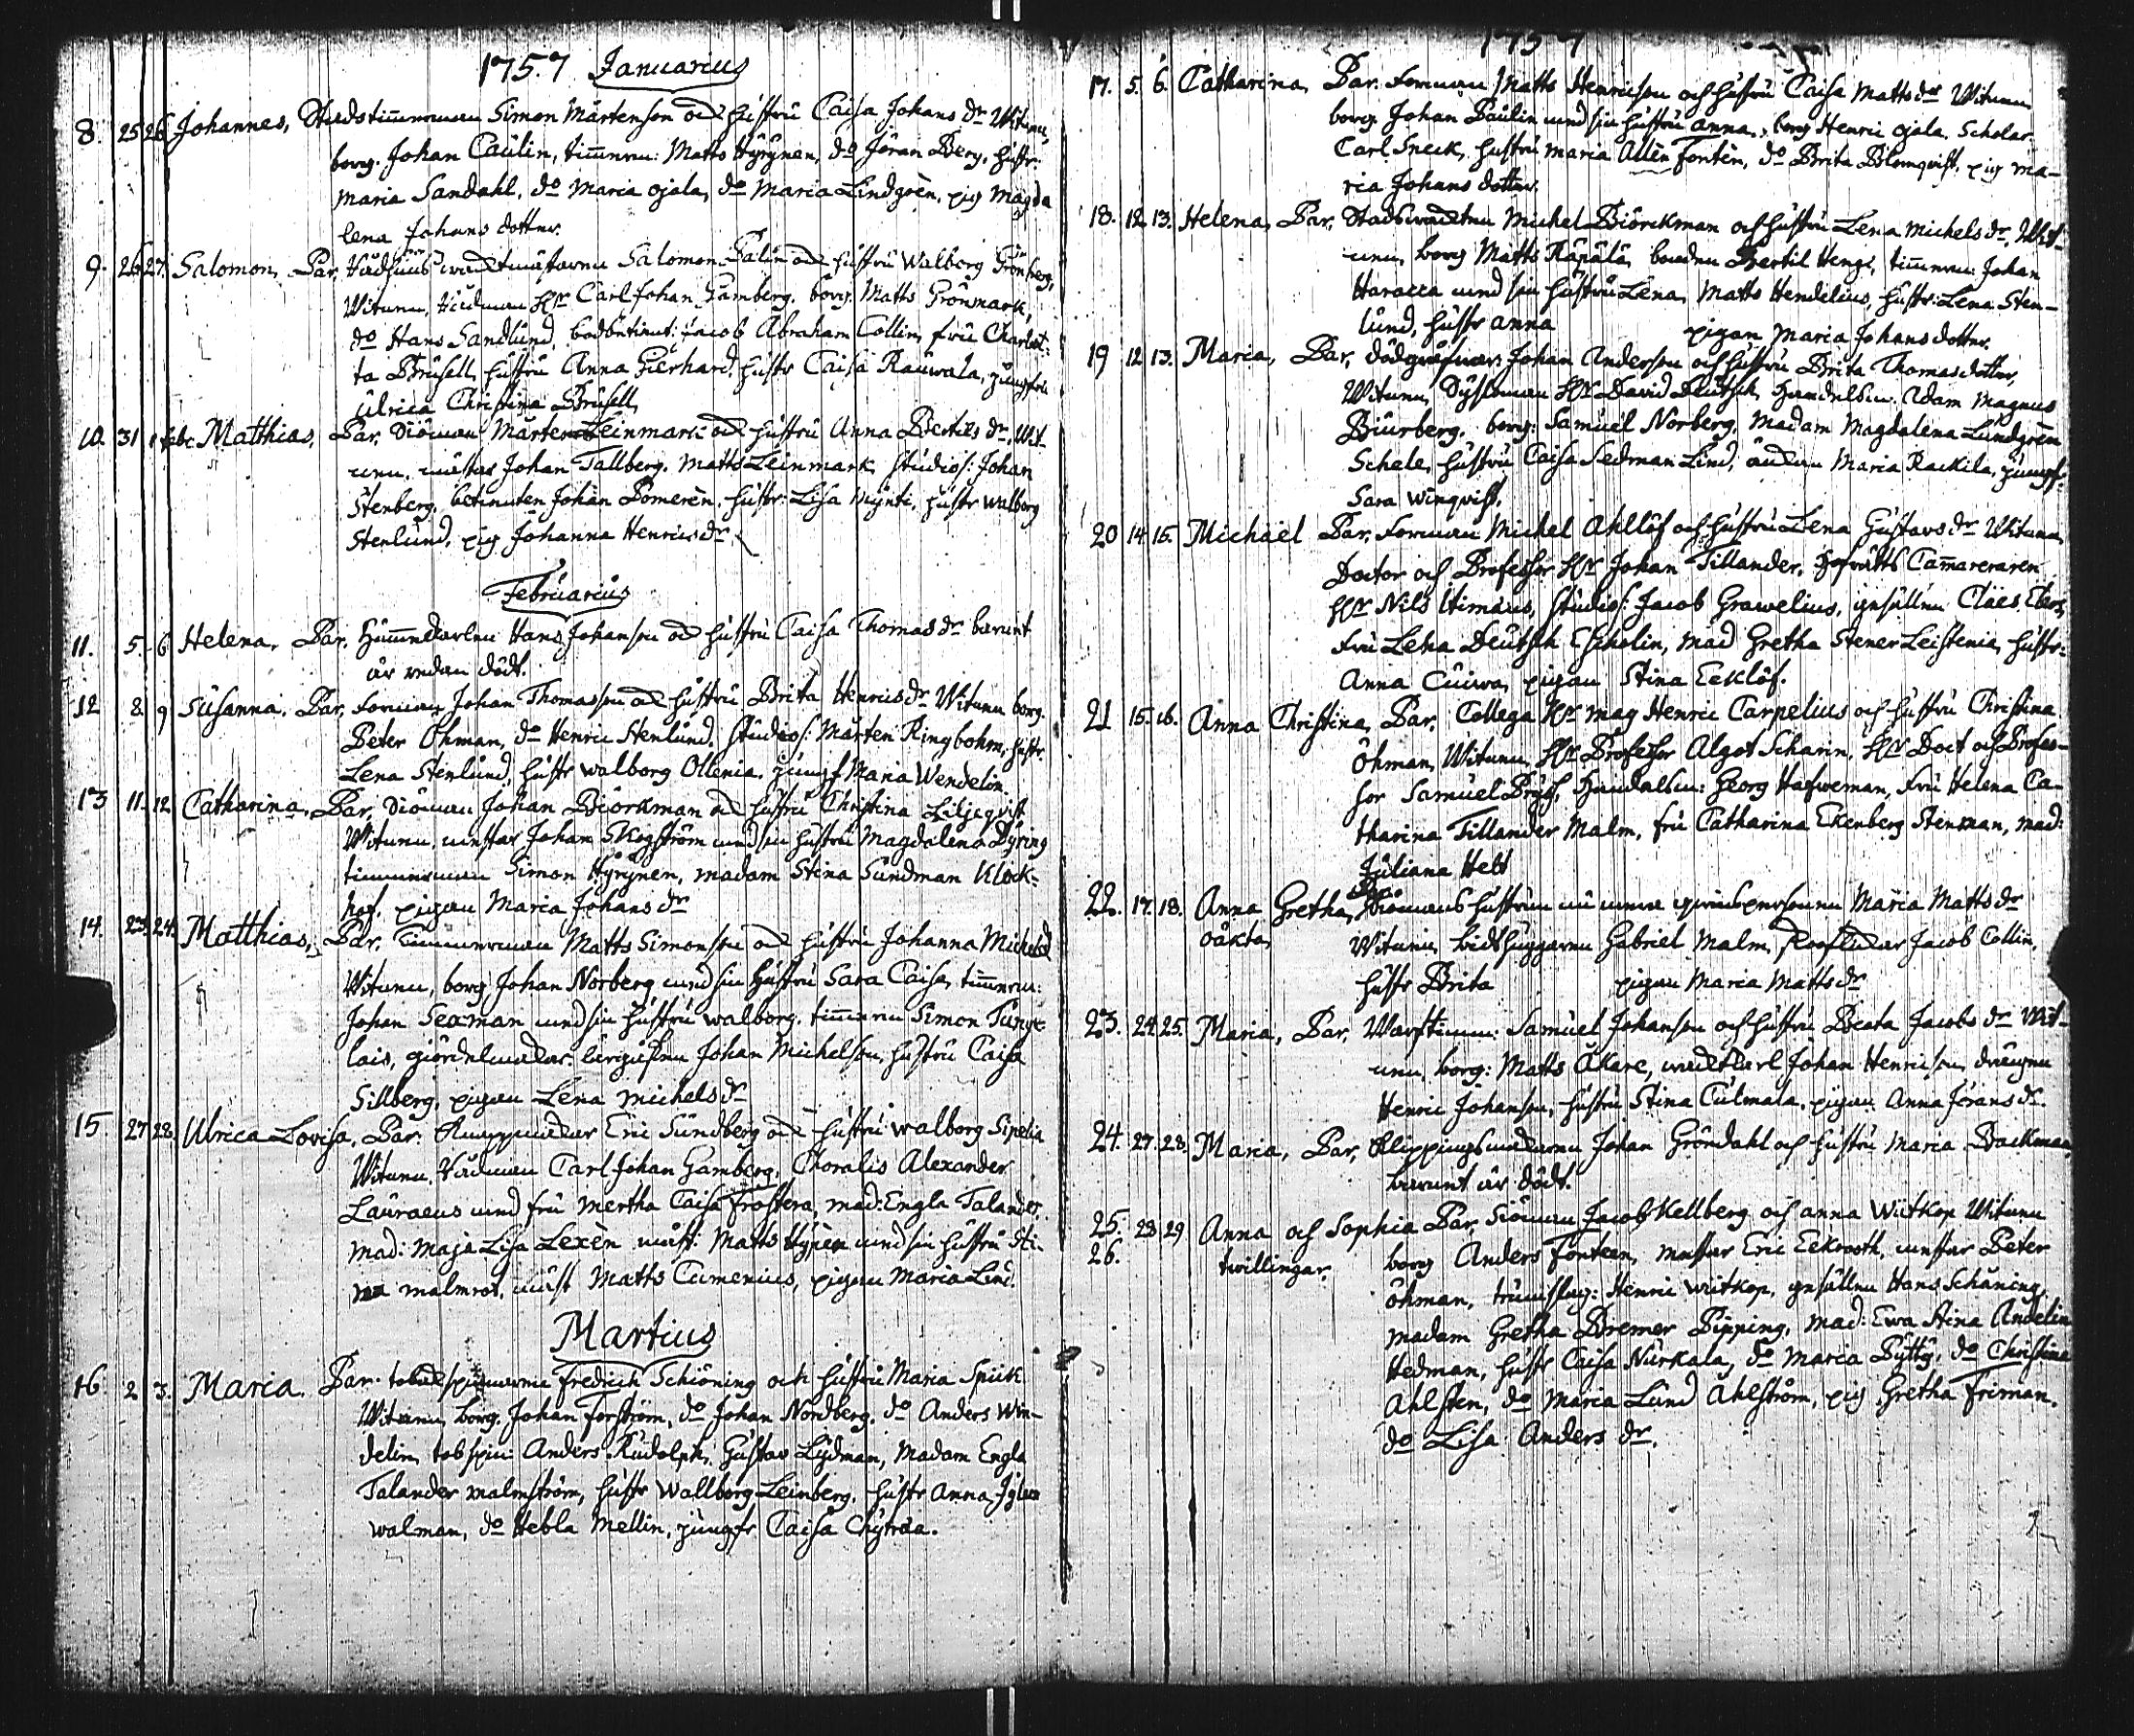 1757 Januarius
8. 25 26 Johannes, Stadstimmerman Simon Mårtenson och hustru Caisa Johans dr Witnen,
borg. Johan Caulin, timmerm: Matts Hyrynen, do Jöran Berg, hustr:
Maria Sandahl, do Maria Ojala, do Maria Lindgrèn, pig Magda
lena Johans dotter.
9. 26 27. Salomon, Par, Salomon Palin och hustru Walborg Grönberg,
Witnen, Rådman Hr Carl Johan Gamberg, borg. Matts Grönmark,
do Hans Sandlund, Jacob Abraham Collin, fru Charlot-
ta Brusell, hustru Anna Gierhard, hustr Caisa Rauwala, jungfru
Ulrica Christina Brusell,
10. 31 1 febr Matthias, Par, Siöman Mårten Leinmark och hustru Anna Bertils dr, Wit-
nen, mästar Johan Tallberg, Matts Leinmark, studios: Johan
Stenberg, betienten Johan Pomerèn, hustr: Lisa Mynti, hustr Walborg
Stenlund, pig Johanna Henrics dr
Februarius
11. 5. 6 Helena, Par. Hans Johanson och hustru Caisa Thomas dr barnet
är redan dödt.
12 8. 9 Susanna. Par, Forman Johan Thomasson och hustru Brita Henrics dr Witnen borg.
Peter Öhman, do Henric Stenlund, Studios: Mårten Ringbohm, hustr.
Lena Stenlund, hustr Walborg Ollenia, jungf Maria Wendelin.
13 11. 12 Catharina, Par, Siöman Johan Biörkman och hustru Christina Liljeqvist
Witnen, mestar Johan Skogström med sin hustru Magdalena Dyring
timmerman Simon Hyrynen, madam Stina Sundman Klock-
hof, pigan Maria Johans dr
14. 23. 24. Matthias, Par, Timmerman Matts Simonson och hustru Johanna Michelsd
Witnen, borg Johan Norberg med sin hustru Sara Caisa, timmerm:
Johan Sexman med sin hustru Walborg, timmerm Simon Tunge
lais, giördelmakar lärgåssen Johan Michelson, hustru Caisa
Sillberg, pigan Lena Michels dr
15 27 28. Ulrica Lovisa, Par. Knappmakar Eric Sundberg och hustru Walborg Sipelia
Witnen, Rådman Carl Johan Gamberg, Choralis Alexander
Lauraeus med fru Mertha Caisa Frostera, mad: Engla Talander,
mad: Maja Lisa Lexèn mäst: Matts Hypèn med sin hustru Sti-
na Malmros, mäst Matts Cumenius, pigan Maria Lind.
Martius
16 2 3. Maria. Par. tobackspinnaren Fredrich Schiöning och hustru Maria Spick
Witnen, borg. Johan Forström, do Johan Nordberg, do Anders Win-
delin, tobspin: Anders Rudolph, Gustav Lydman, Madam Engla
Talander Malmström, hustr Wallborg Leinberg, hustr Anna
Walman, do Hebla Mellin, jungfr Caisa Chytraea.
1757
17. 5. 6. Catharina, Par. Forman Matts Henricson och hustru Caisa Matts dr Witnen
borg Johan Paulin med sin hustru Anna, borg Henric Ojala, Scholar.
Carl Sneck, hustru Maria Allèn Fontèn, do Brita Blomqvist, pig Ma-
ria Johans dotter.
18. 12 13. Helena, Par, Stadswachten Michel Biörckman och hustru Lena Michels dr, Wit-
nen, borg Matts Räpälä, bonden Bertil Heng, timmerm: Johan
Haracca med sin hustru Lena, Matts Hendelius, hustr: Lena Sten-
lund, hustr Anna pigan Maria Johans dotter.
19 12 13. Maria, Par, dödgräfvar: Johan Anderson och hustru Brita Thomas dotter,
Witnen, Sysloman Hr David Deutsch, handelsm. Adam Magnus
Biurberg, borg: Samuel Norberg, Madam Magdalena Lundgrèn
Schele, hustru Caisa Sedman Lind, änkan Maria Rackila, jungf:
Sara Winqvist,
20 14 15. Michaël Par, Forman Michel Ahllöf och hustru Lena Gustavs dr Witnen
Doctor och Professor Hr Johan Tillander, hofrätts Camereraren
Hr Nils Himaeus, studios: Jacob Grawelius, gesällen Claes
fru Lena Deutsch Escholin, mad Gretha Stener Leistenia, hustr:
Anna Cuiwa, pigan Stina Ecklöf.
21 15. 16. Anna Christina, Par, Collega Hr mag Henric Carpelius och hustru Christina
Öhman, Witnen, Hr Professor Algot Scharin, Hr Doct och Profes-
sor Samuel Pryss, Handelsm: Georg Hafweman, fru Helena Ca-
tharina Tillander Malm, fru Catharina Ekenberg Stenman, mad:
Juliana Helt
22. 17. 18. Anna Gretha, Par. Siömans hustrun Maria Matts dr
oäkta, Witnen, bidthuggaren Gabriel Malm, Jacob Collin,
hustr Brita pigan Maria Matts dr
23. 24 25. Maria, Par, Warfstimm: Samuel Johanson och hustru Beata Jacobs dr Wit-
nen, borg: Matts Åkare, wachtkarl Johan Henricson, drängen
Henric Johanson, hustru Stina Culmala, pigan Anna Jörans dr.
24. 27. 28. Maria, Par, Klippingsmakaren Johan Gröndahl och hustru Maria Backman
barnet är dödt.
25. 28 29 Anna och Sophia Par, Siöman Jacob Kellberg och Anna Witkop Witnen
26. twillingar, borg Anders Fonteen, mestar Eric Eekrooth, mestar Peter
Öhman, trumslag: Henric Witkop, gesällen Hans Schöning,
Madam Gretha Bremer Pipping, mad: Ewa Stina Andelin
Hedman, hustr Caisa Nurkala, do Maria Pytty, do Christina
Ahlsten, do Maria Lund Ahlström, pig Gretha Friman,
do Lisa Anders dr.